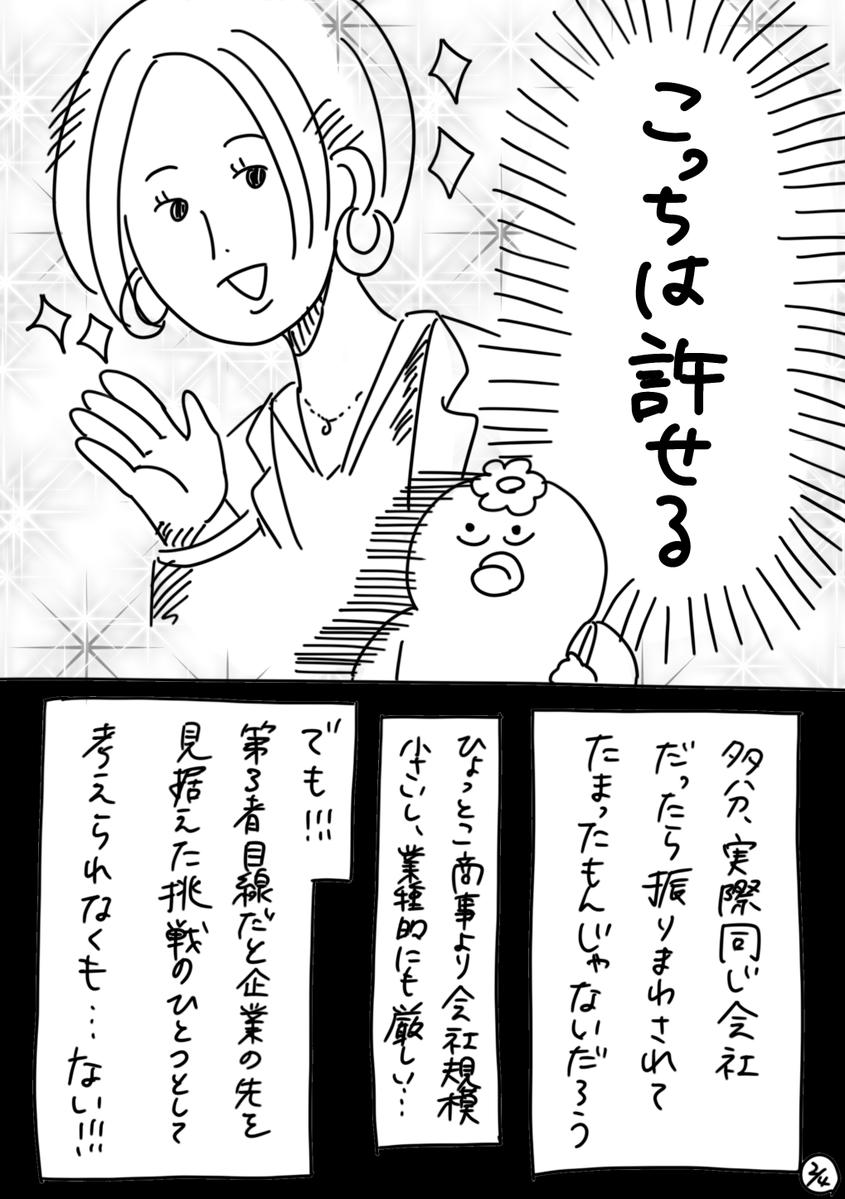 こっちは許せる
多分、実際同じ会社
だったら振りまわされて
たまったもんじゃないだろう
ひょっとこ商事より会社規模
小さいし、業種的にも厳しい…
でも!!!
第3者目線だと企業の先を
見据えた挑戦のひとつとして
考えられなくも…ない!!!
2/4